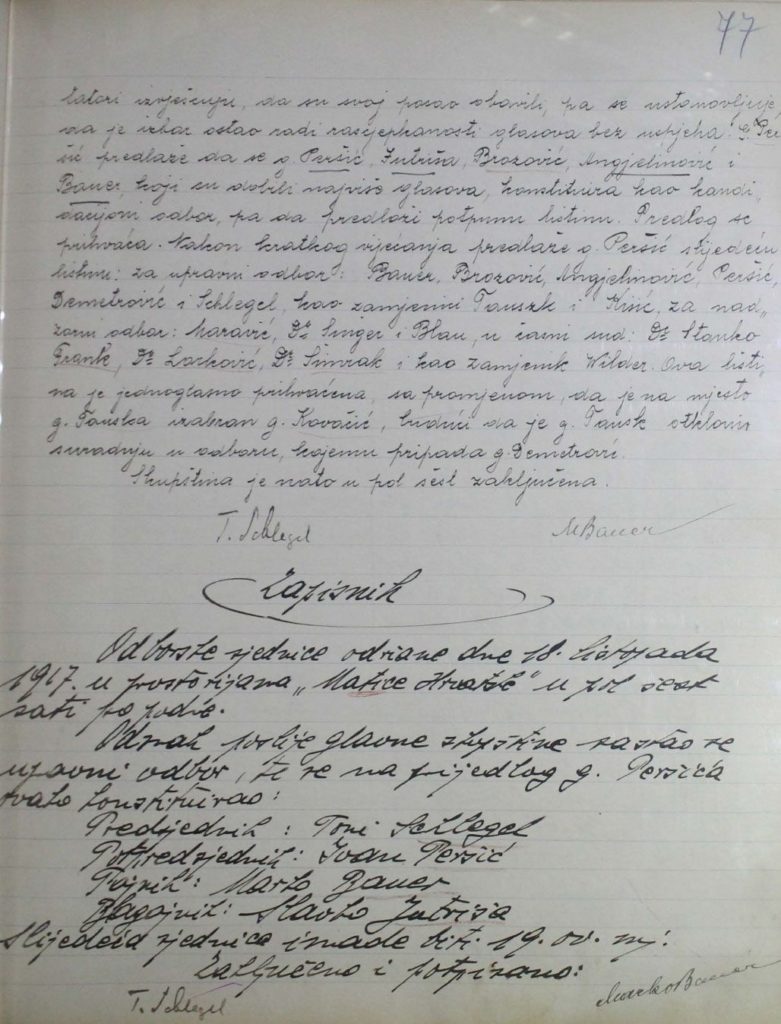 77
tatori izvješćuju, da su svoj posao obavili, pa se ustanovljuje,
da je izbor ostao radi rascjepkanosti glasova bez uspjeha. G. Per-
šić predlaže da se g. Peršić, Jutriša, Brozović, Angjelinović i
Bauer, koji su dobili najviše glasova, konstituira kao kandi„
dacijoni odbor, pa da predloži potpunu listinu. Predlog se
prihvaća. Nakon kratkog vijećanja predlaže g. Peršić slijedeću
listinu: za upravni odbor: Bauer, Brozović, Angjelinović, Peršić,
Demetrović i Schlegel, kao zamjenici Tauszk i Kršić, za nad„
zorni odbor: Maravić, Dr Singer i Blau, u časni sud: Dr Stanko
Frank, Dr Lorković, Dr Šimrak i kao zamjenik Wilder. Ova listi„
na je jednoglasno prihvaćena, sa promjenom, da je na mjesto
g. Tauska izabran g. Kovačić, budući da je g. Tausk otklonio
suradnju u odboru, kojemu pripada g. Demetrović.
Skupština je nato u pol šest zaključena.
T. Schlegel MBauer
Zapisnik
Odborske sjednice održane dne 18. listopada
1917. u prostorijama „Matice Hrvatske" u pol šest
sati po podne.
Odmah poslije glavne skupštine sastao se
upravni odbor, te se na prijedlog g. Peršića
ovako konstituirao:
Predsjednik: Toni Schlegel
Potpredsjednik: Ivan Peršić
Tajnik: Marko Bauer
Blagajnik: Slavko Jutriša
Slijedeća sjednica imade biti 19. ov. mj.
Zaključeno i potpisano:
T. Schlegel MarkoBauer